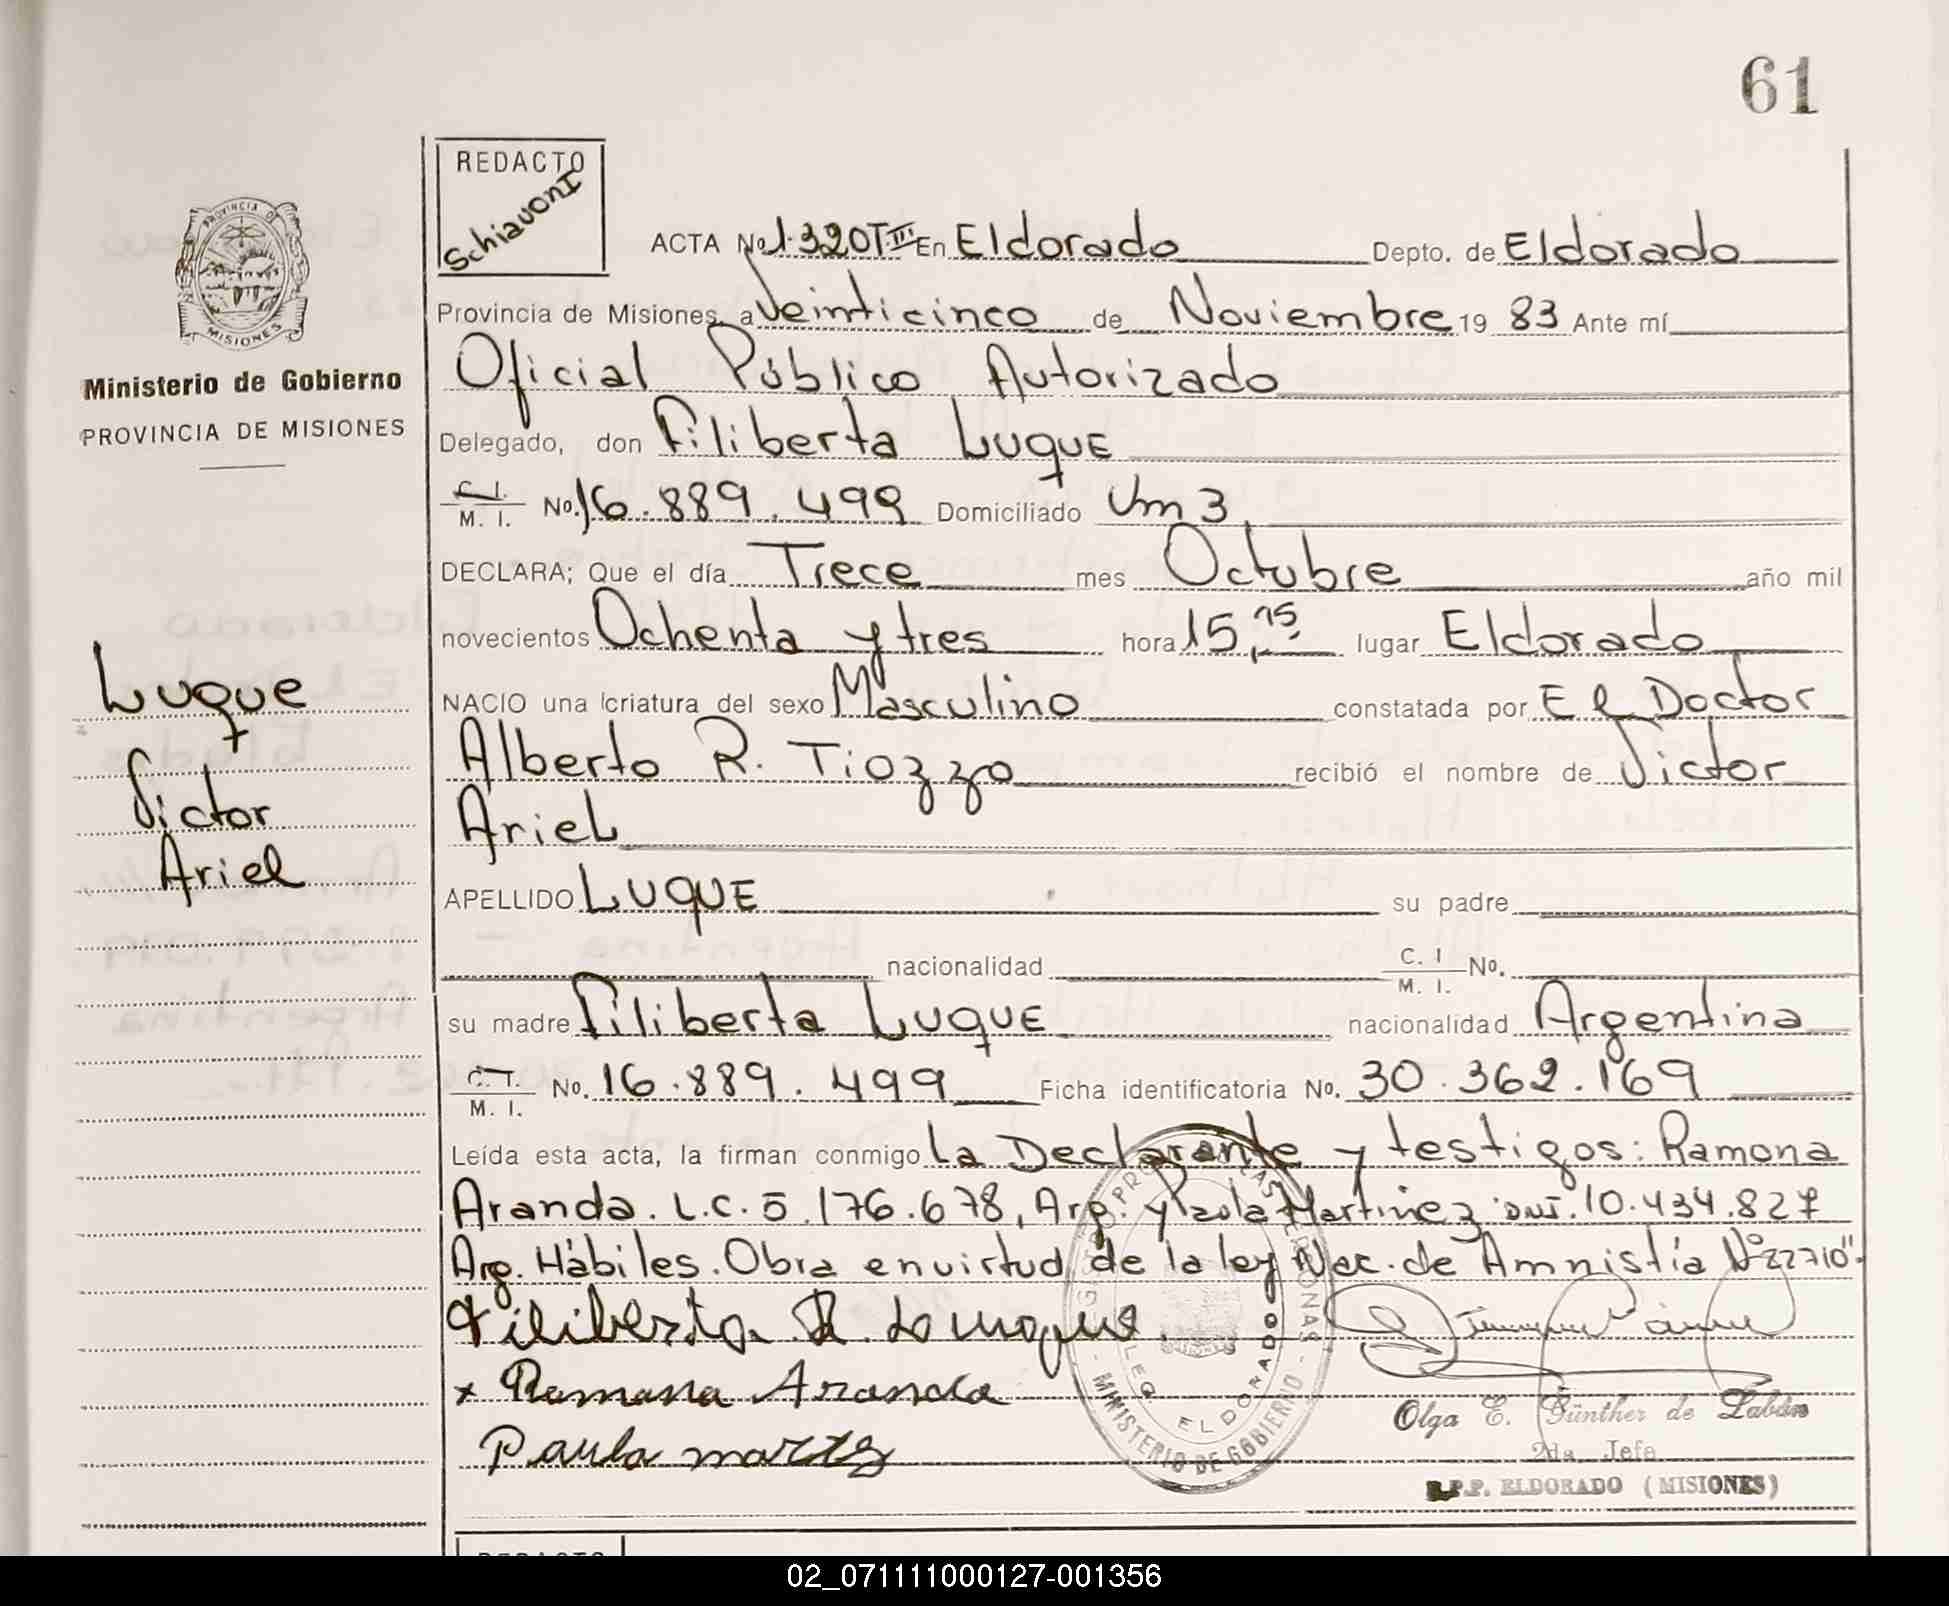 61
REDACTO
Schiavoni
PROVINCIA DE
MISIONES
Ministerio de Gobierno
PROVINCIA DE MISIONES
Luque
Victor
Ariel
ACTA No. 1.320 T.III En Eldorado Depto. de Eldorado
Provincia de Misiones, a Veinticinco de Noviembre 19 83 Ante mí
Oficial Público Autorizado
Delegado, don Filiberta Luque
C. I.
M. I. No. 16.889.499 Domiciliado Km 3
DECLARA; Que el día Trece mes Octubre año mil
novecientos Ochenta y tres hora 15,15 lugar Eldorado
NACIO una criatura del sexo Masculino constatada por El Doctor
Alberto R. Tiozzo recibió el nombre de Victor
Ariel
APELLIDO Luque su padre
nacionalidad C. I. M. I. No.
su madre Filiberta Luque nacionalidad Argentina
C. I.
M. I. No. 16.889.499 Ficha identificatoria No. 30.362.169
Leída esta acta, la firman conmigo La Declarante y testigos: Ramona
Aranda. L.C. 5.176.678, Arg. y Paula Martinez DNI. 10.434.827
Arg. Hábiles. Obra en virtud de la ley Nac. de Amnistía Nº 22710".
Filiberta R. Luque
x Ramona Aranda
Paula
MINISTERIO DE GOBIERNO
ELDORADO
Olga E. Günther de Labán
2da. Jefe
R.P.P. ELDORADO (MISIONES)
REDACTO
02_071111000127-001356